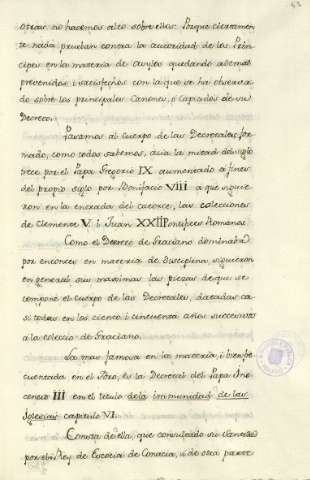 43
otras, no hacemos alto sobre ellos. Porque ciertamen
te nada prueban contra la autoridad de los Prín
cipes en la materia de asylos quedando ademas
prevenidos, i satisfechos con lo que se ha observa
do sobre los principales Canones, o capitulos de su
Decreto.
Pasamos al cuerpo de las Decretales, for
mado, como todos sabemos, acia la mitad del siglo
trece por el Papa Gregorio IX aumentado a fines
del propio siglo por Bonifacio VIII a que siguie
ron en la entrada del catorce, las colecciones
de Clemente V i Juan XXII Pontifices Romanos.
Como el Decreto de Graciano dominaba
por entonces en materia de disciplina, siguieron
en general sus maximas las piezas de que se
compone el cuerpo de las Decretales, datadas ca
si todas en los ciento i cincuenta años succesivos
a la coleccion de Graciano.
La mas famosa en la materia, i bien fre
cuentada en el Foro, es la Decretal del Papa Ino
cencio III en el titulo de la immunidad de las
Iglesias capitulo VI.
Consta de ella, que consultado su Santidad
por el Rey de Escocia de Conacia, u de otra parte